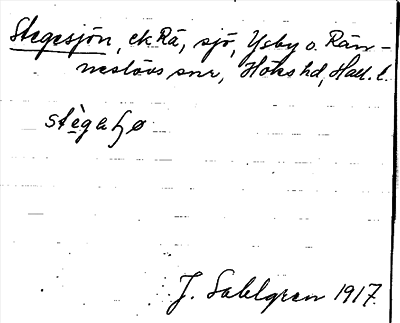 Stegesjön, ek Rä, sjö, Ysby o. Rän-
neslövs snr, Höks hd, Hall. l.
stègaɧø
J. Sahlgren 1917.